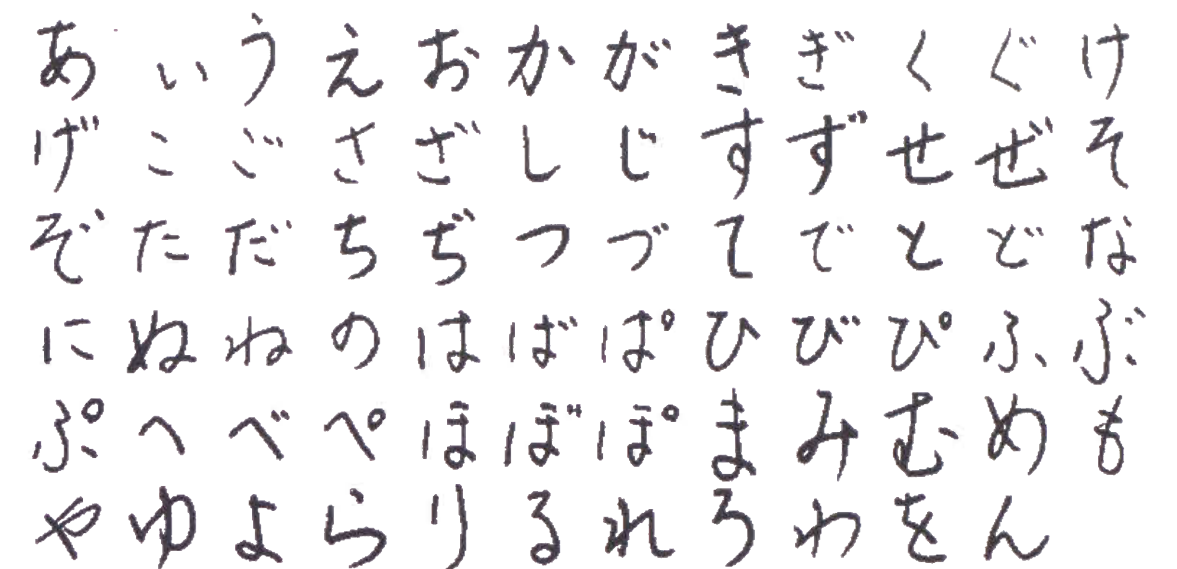 あいうえおかがきぎくぐけ
げこごさざしじすずせぜそ
ぞただちぢつづてでとどな
にぬねのはばぱひびぴふぶ
ぷへべぺほぼぽまみむめも
やゆよらりるれろわをん